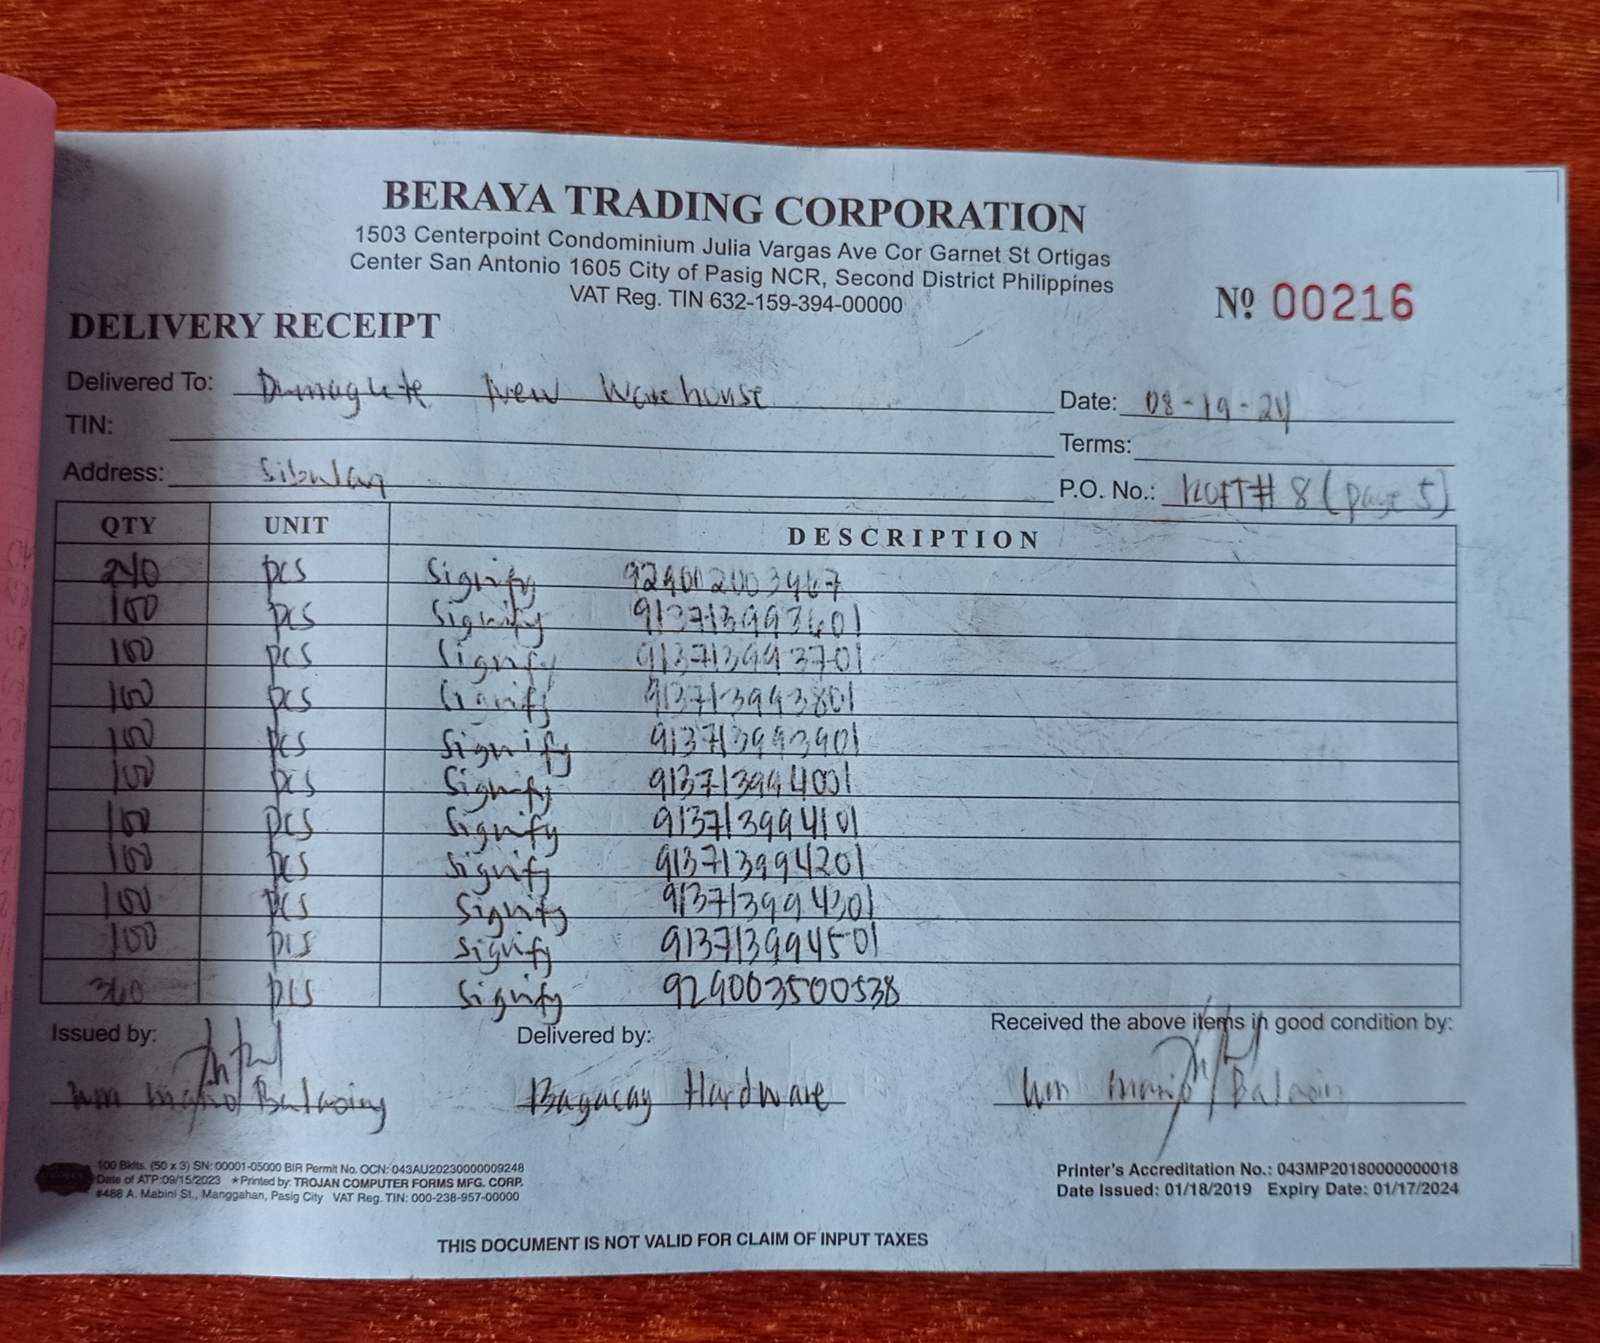 BERAYA TRADING CORPORATION
1503 Centerpoint Condominium Julia Vargas Ave Cor Garnet St Ortigas
Center San Antonio 1605 City of Pasig NCR, Second District Philippines
VAT Reg. TIN 632-159-394-00000
Nº 00216
DELIVERY RECEIPT
Delivered To: Dumaguete New Warehouse
Date: 08-19-24
TIN:
Terms:
Address: Sibulan
P.O. No.: # 8 (page 5)
QTY UNIT DESCRIPTION
240 pcs Signify 929002003967
100 pcs Signify 913713993601
100 pcs Signify 913713993701
100 pcs Signify 913713993801
100 pcs Signify 913713993901
100 pcs Signify 913713994001
100 pcs Signify 913713994101
100 pcs Signify 913713994201
100 pcs Signify 913713994301
100 pcs Signify 913713994501
pcs Signify 929003500538
Issued by:
Delivered by:
Received the above items in good condition by:
Bagacay Hardware
100 Bklts. (50 x 3) SN: 00001-05000 BIR Permit No. OCN: 043AU20230000009248
Date of ATP:09/15/2023 *Printed by: TROJAN COMPUTER FORMS MFG. CORP.
#488 A. Mabini St., Manggahan, Pasig City VAT Reg. TIN: 000-238-957-00000
Printer's Accreditation No.: 043MP20180000000018
Date Issued: 01/18/2019 Expiry Date: 01/17/2024
THIS DOCUMENT IS NOT VALID FOR CLAIM OF INPUT TAXES